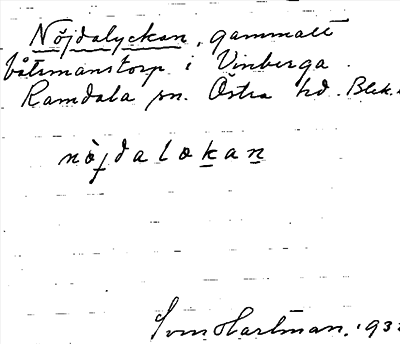 Nöjdalyckan, gammalt
båtsmanstorp i Vinberga
Ramdala sn. Östra hd. Blek.
nöjdalokan
Sven Hartman, 193